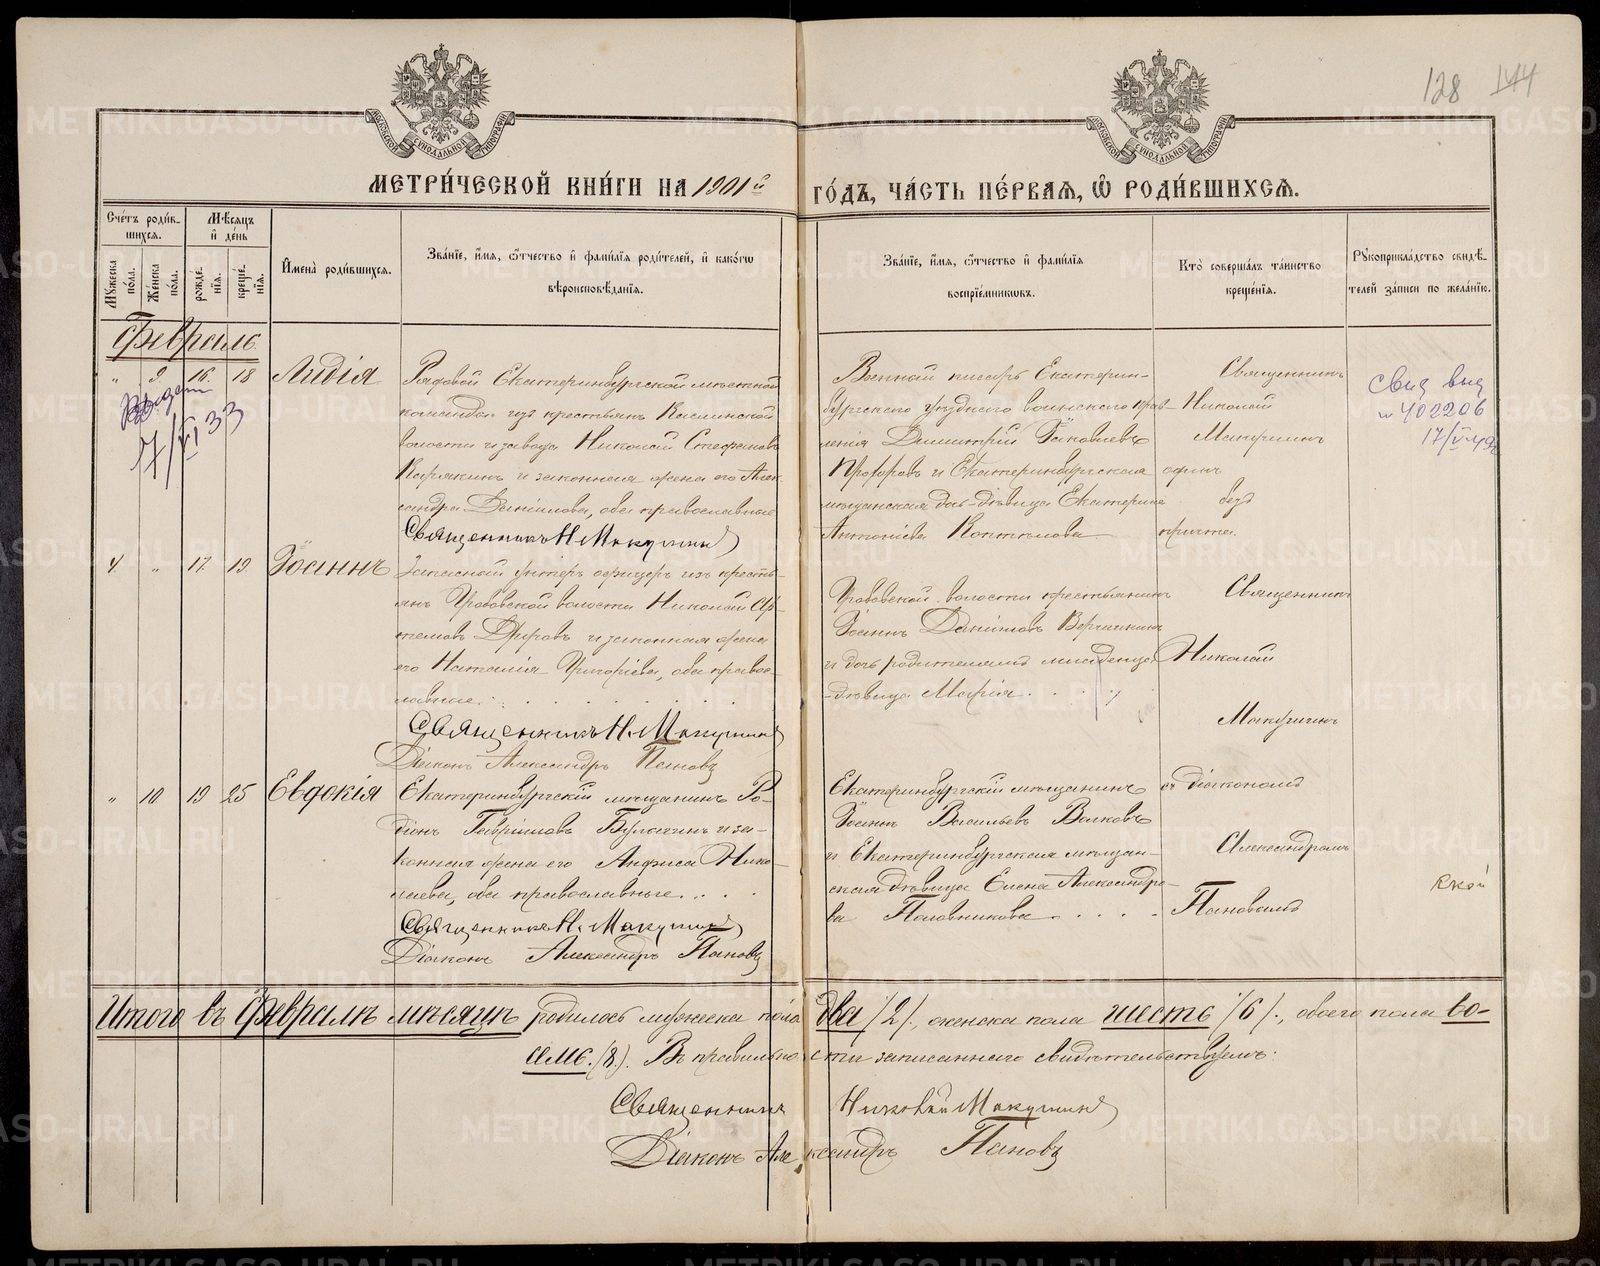 128 144
МОСКОВСКОЙ СУНОДАЛЬНОЙ ТИПОГРАФІИ
МОСКОВСКОЙ СУНОДАЛЬНОЙ ТИПОГРАФІИ
МЕТРИ́ЧЕСКОЙ КНИ́ГИ НА 1901й ГО́ДЪ, ЧА́СТЬ ПЕ́РВАЯ, Ѡ РОДИ́ВШИХСЯ.
Сче́тъ роди́в-
шихся.
Мѣсяцъ
и де́нь
Мꙋжеска по́ла.
Же́нска по́ла.
рожде́нїя.
креще́нїя.
Имена̀ роди́вшихся.
Зва́нїе, и́мя, ѻ́тчество и фами́лїя роди́телей, и како́гѡ
вѣроисповѣ́данїя.
Зва́нїе, и́мя, ѻ́тчество и фами́лїя
воспрїе́мникѡвъ.
Кто̀ соверша́лъ та́инство
креще́нїя.
Рꙋкоприкла́дство свидѣ́-
телей за́писи по жела́нїю.
Февраль.
" 9 16. 18 Лидія
Рядовой Екатеринбургской мѣстной
команды изъ крестьянъ Каслинской
волости и завода Николай Стефановъ
Карякинъ и законная жена его Алек-
сандра Даніилова, оба православные
Священникъ Н. Макушинъ
Военный писарь Екатерин-
бургскаго уѣзднаго воинскаго прав-
ленія Димитрій Іаковлевъ
Прохоровъ и Екатеринбургская
мѣщанская дочь-дѣвица Екатерина
Антоніева Коптилова
Священникъ
Николай
Макушинъ
одинъ
безъ
причта.
Выдан
17/VI 33
Свид выд
№ 402206
17/V-49г
4. " 17. 19. Іоаннъ
Запасной унтеръ офицеръ изъ кресть-
янъ Грабовской волости Николай Ар-
темовъ и законная жена
его Наталія Григоріева, оба право-
славные.
Священникъ Н. Макушинъ
Діаконъ Александръ Пановъ
Грабовской волости крестьянинъ
Іоаннъ Даніиловъ
и дочь родителей младенца,
-дѣвица Марія
Священникъ
Николай
Макушинъ
" 10 19 25 Евдокія
Екатеринбургскій мѣщанинъ Ро-
діонъ Гавріиловъ Булыгинъ и за-
конная жена его Анфиса Нико-
лаева, оба православные.
Священникъ Н. Макушинъ
Діаконъ Александръ Пановъ
Екатеринбургскій мѣщанинъ
Іоаннъ Васильевъ Волковъ
и Екатеринбургская мѣщан-
ская дѣвица Елена Александро-
ва Половникова
съ діакономъ
Александромъ
Пановымъ
Итого въ Февралѣ мѣсяцѣ родилось мужеска пола два /2/. женска пола шесть /6/., обоего пола во-
семь. (8). Въ правильности записаннаго свидѣтельствуемъ:
Священникъ Николай Макушинъ
Діаконъ Александръ Пановъ
METRIKI.GASO-URAL.RU